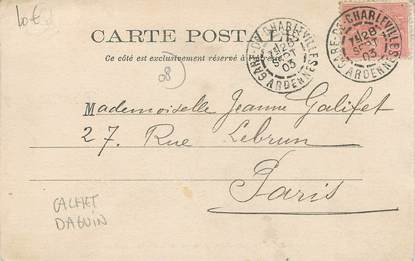 10€
CARTE POSTALE
Ce côté est exclusivement réservé à
GARE-DE-CHARLEVILLE
28
SEPT
03
ARDENNES
GARE-DE-CHARLEVILLE
28
SEPT
03
ARDENNES
08
Mademoiselle Jeanne Galifet
27. Rue Lebrun
Paris
CACHET
DAGUIN